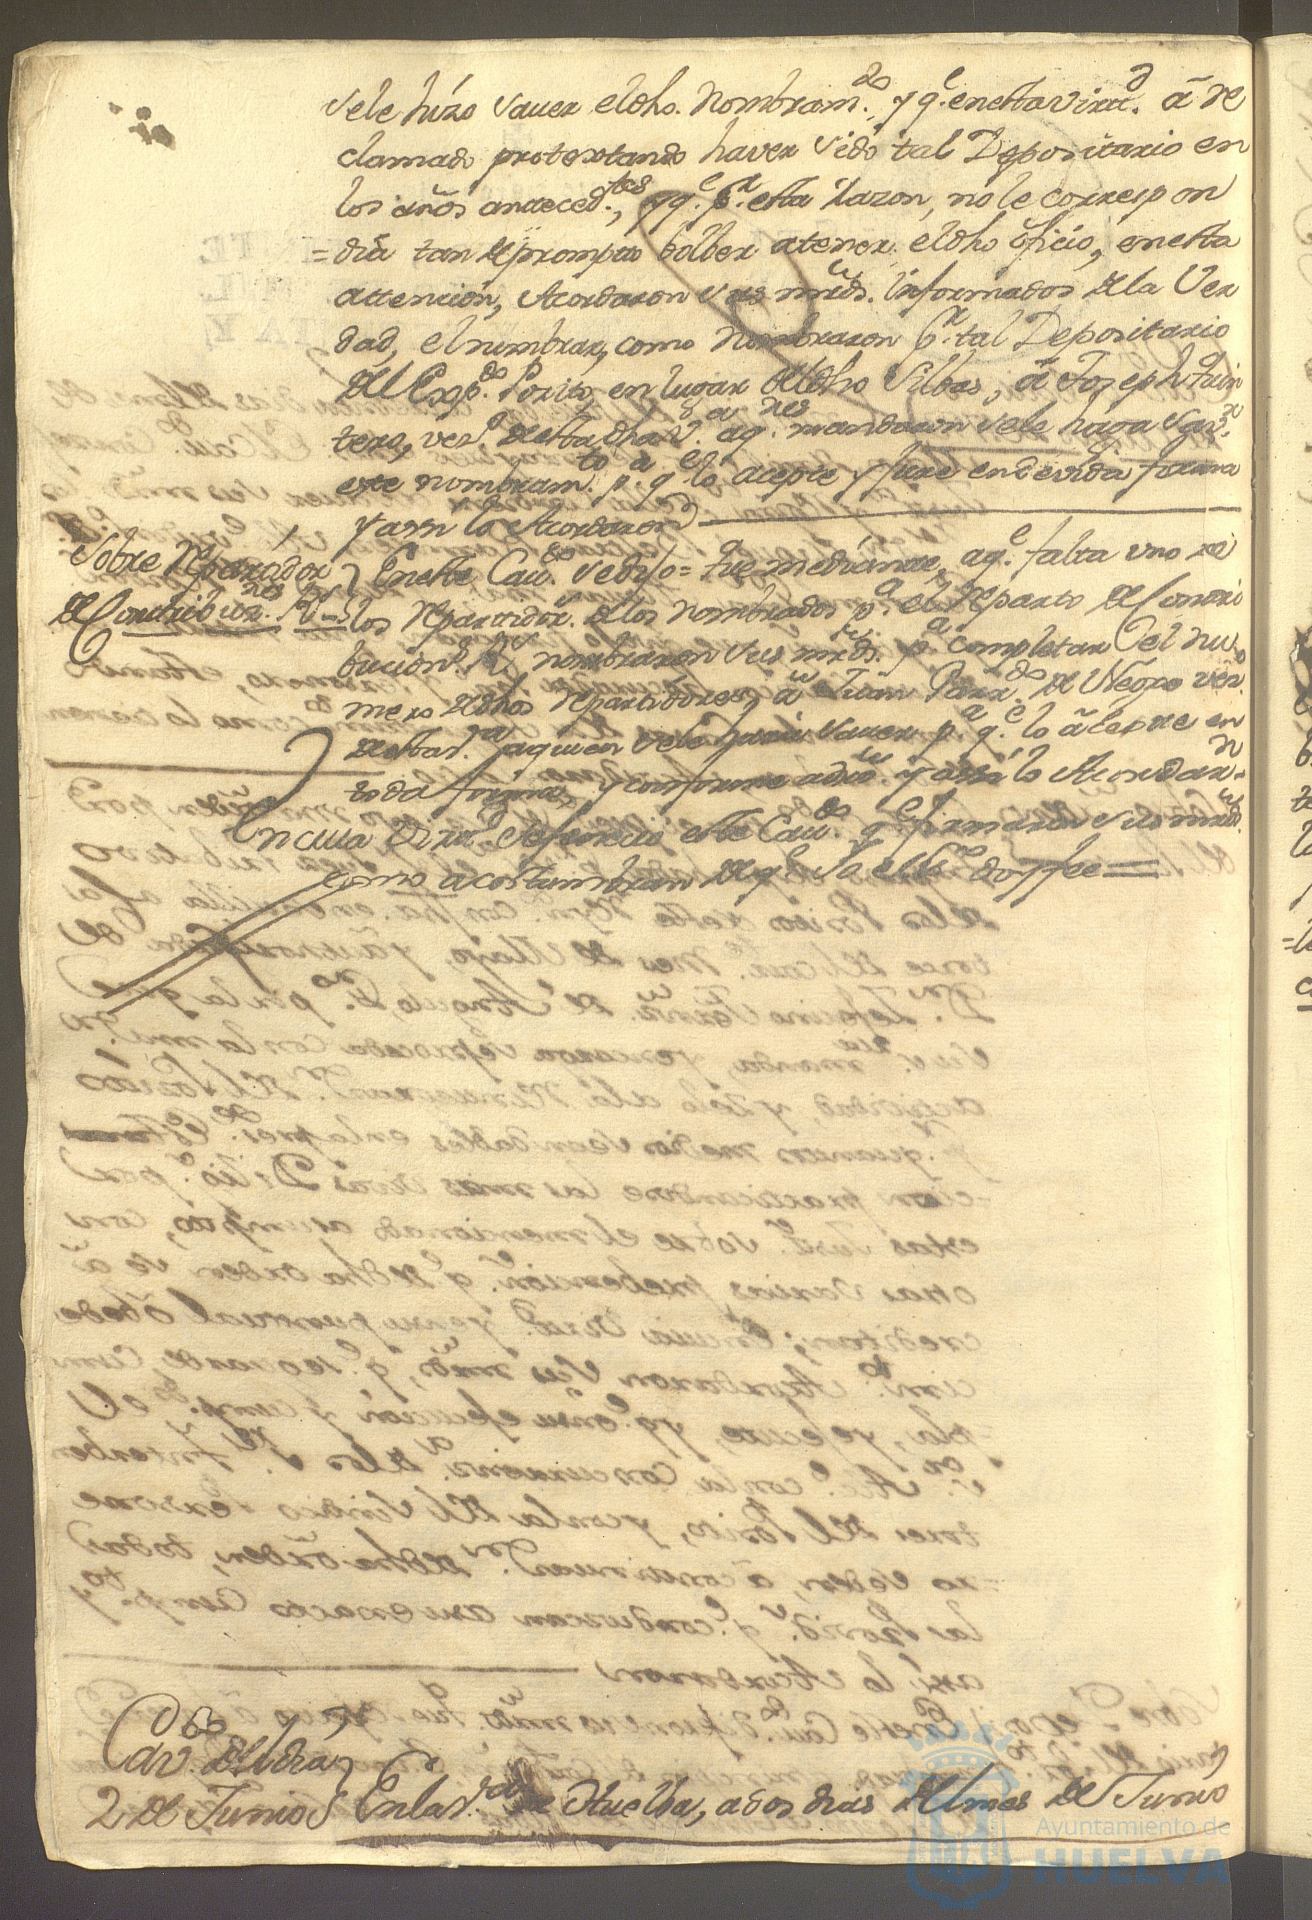 se le hizo saver el dho. Nombram.do y q.e en esta virtd. ã re
clamado protextando haver sido tal Depositario en
los años anteced.tes, y q.e p.r esta razon, no le correspon
= dia tan de prompto bolber a tener el dho oficio, en esta
attencion, Acordaron sus mrds. informados de la Ver
dad, el nombrar, como Nombraron p.r tal Depositario
del Exp.do Posito, en lugar del dho Silbas, ã Joseph Quin
tero, vez.o de esta dha V.a a q.n mandaron se le haga sav.r
este nombram.to p.a q.e lo acepte y jure en devida forma
y assi lo Acordaron
Sobre Reparador
de Contribuz.nes R.s
En este Cav.do se dijo = que mediante, a q.e falta uno de
los Repartidor. de los Nombrados p.a el Reparto de Contri
bucion.s R.s nombraron sus mrds. p.a completar el nu
mero de dhos Repartidores, ã Juan de Negro vez.o
de esta V.a a quien se le hara saver p.a q.e lo acepte en
toda forma, y conforme a dro. y assi lo Acordar.n =
En cuia Virtd. se fenecio este Cav.do q.e firmaron sus mrds.
como acostumbran de q.e Yo el Ess.no doy fee =
Cav.do del dia
2 de Junio
En la V.a de Huelba, a dos dias del mes de Junio
Ayuntamiento de
HUELVA